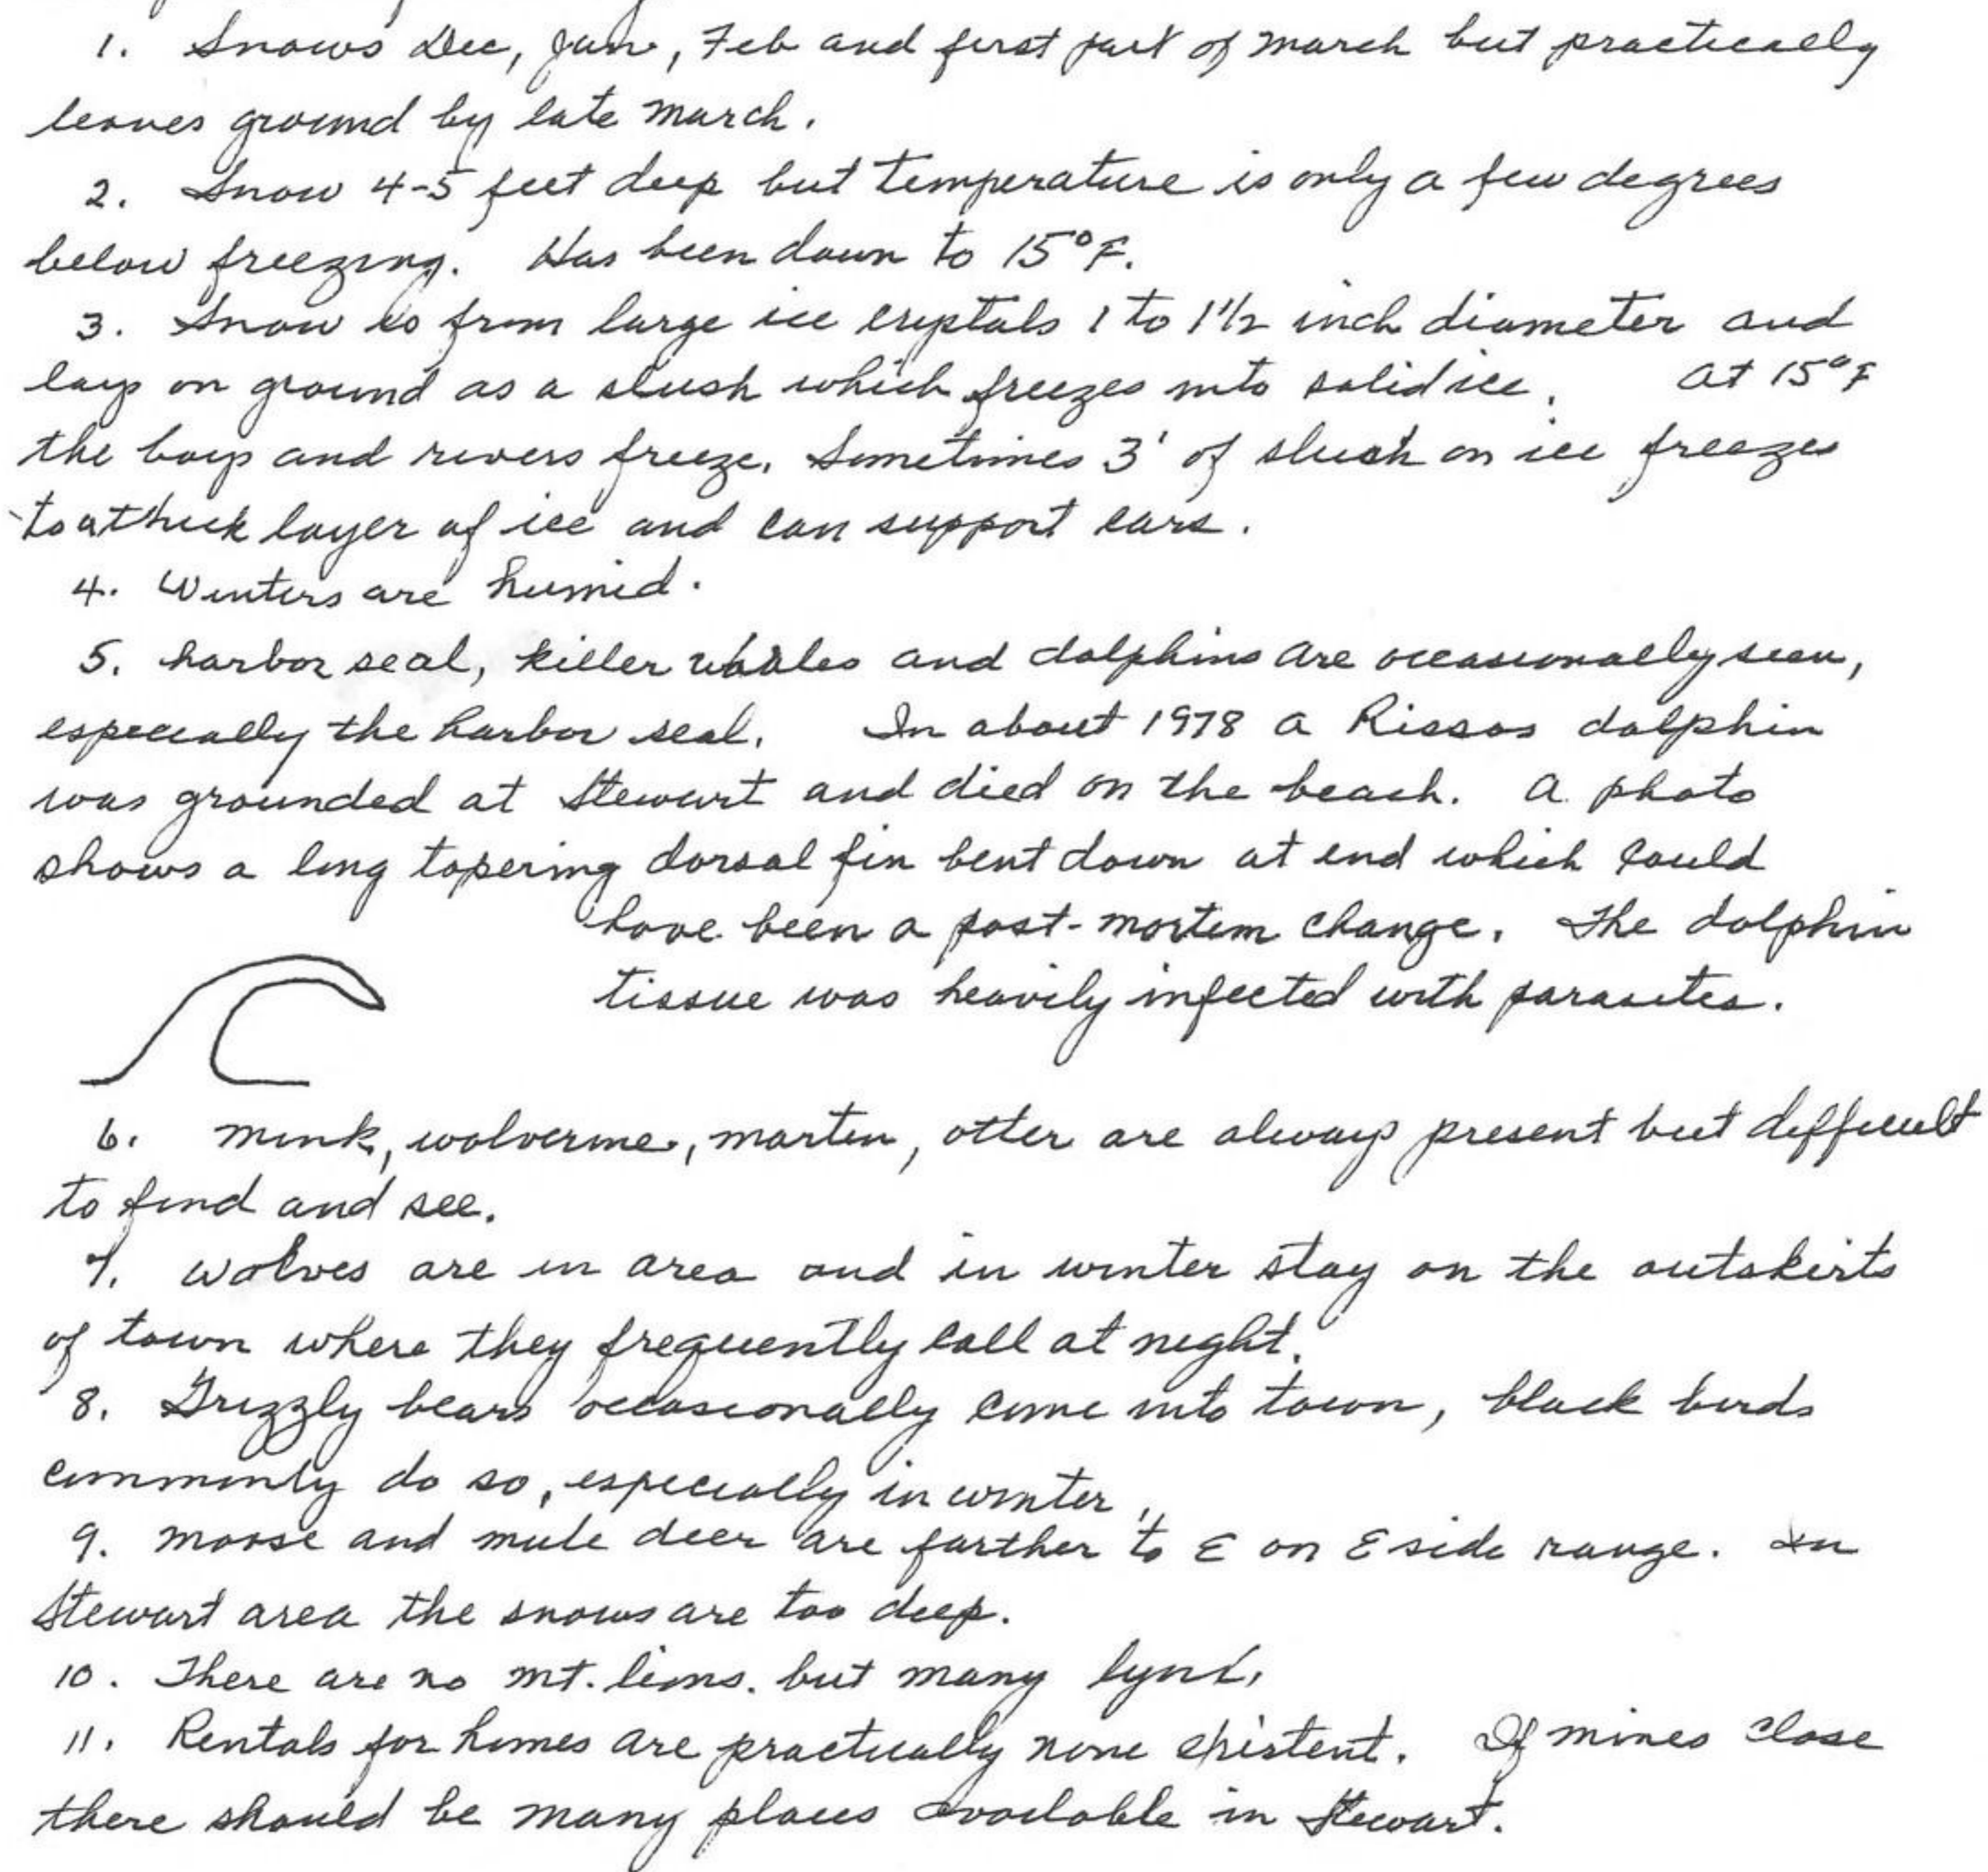 1. Snows Dec, Jan, Feb and first part of march but practically
leaves ground by late march.
2. Snow 4-5 feet deep but temperature is only a few degrees
below freezing. Has been down to 15°F.
3. Snow is from large ice crystals 1 to 1½ inch diameter and
lays on ground as a slush which freezes into solid ice. At 15°F
the bays and rivers freeze. Sometimes 3' of slush on ice freezes
to a thick layer of ice and can support cars.
4. Winters are humid.
5. harbor seal, killer whales and dolphins are occasionally seen,
especially the harbor seal. In about 1978 a Rissos dolphin
was grounded at Stewart and died on the beach. A photo
shows a long tapering dorsal fin bent down at end which could
have been a post-mortem change. The dolphin
tissue was heavily infected with parasites.
6. mink, wolverine, marten, otter are always present but difficult
to find and see.
7. wolves are in area and in winter stay on the outskirts
of town where they frequently call at night.
8. Grizzly bears occasionally come into town, black birds
commonly do so, especially in winter.
9. moose and mule deer are farther to E on E side range. In
Stewart area the snows are too deep.
10. There are no mt. lions. but many lynx.
11. Rentals for homes are practically none existent. If mines close
there should be many places available in Stewart.